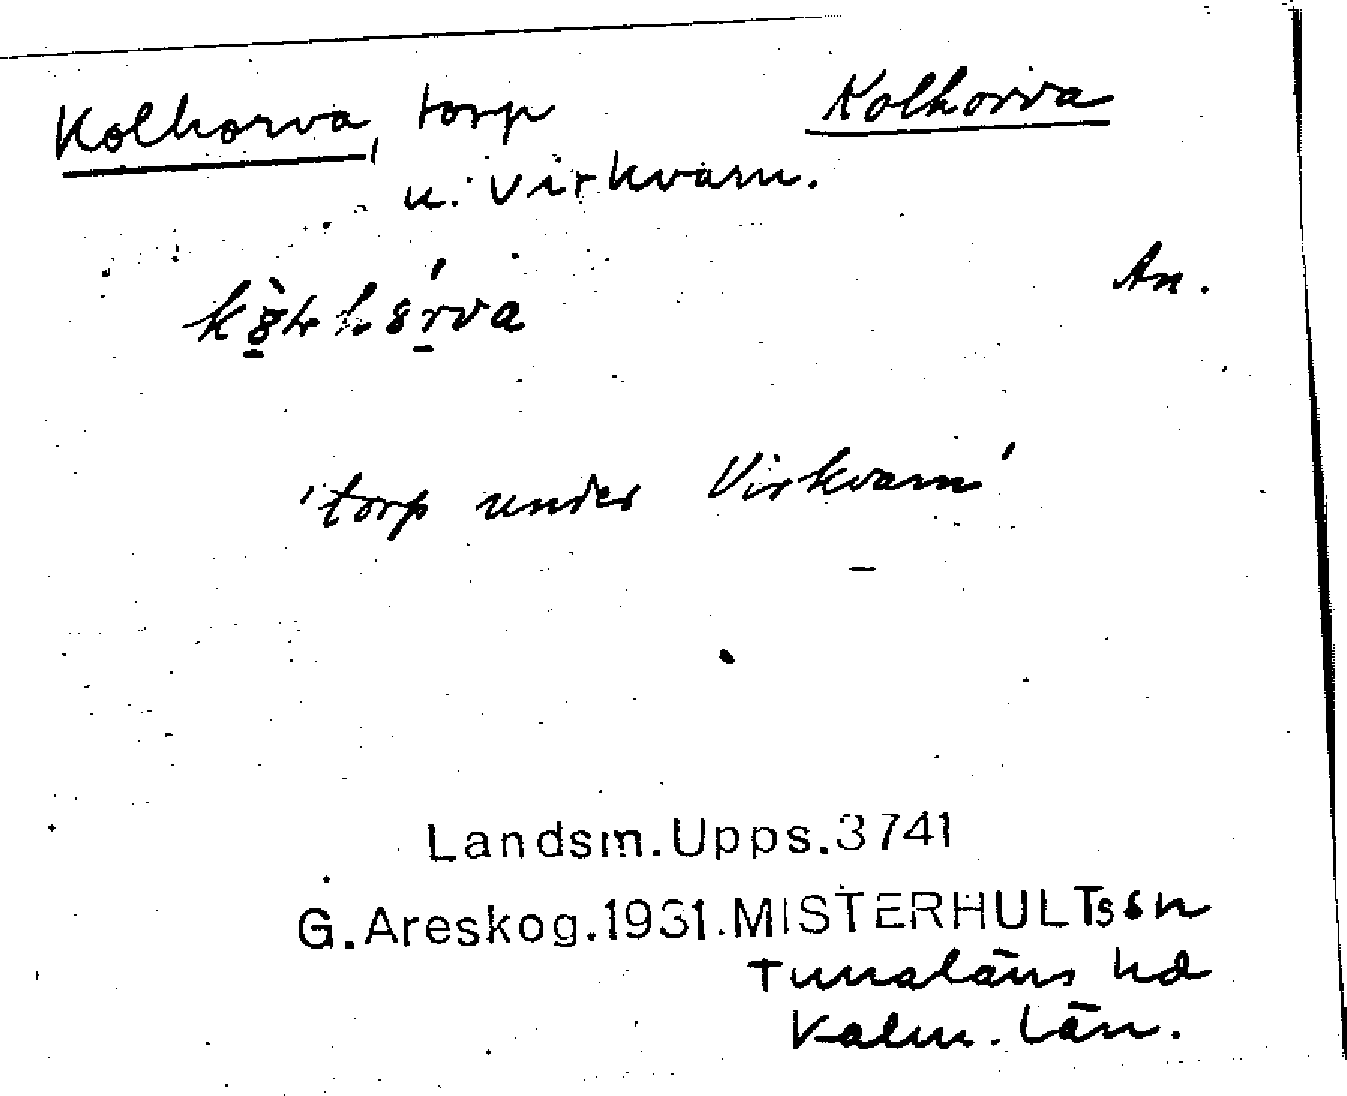 Kolhorva, torp Kolhorva
u. Virkvarn.
An.
'torp under Virkvarn'
Landsm.Upps.3741
G.Areskog.1931.MISTERHULTssn
Tunaläns hd
Kalm. län.